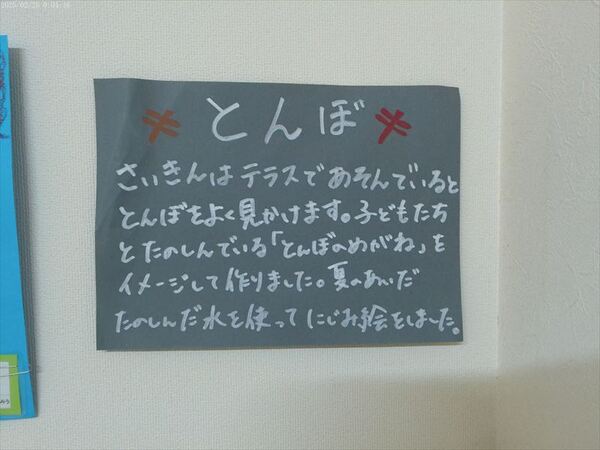 とんぼ
さいきんはテラスであそんでいると
とんぼをよく見かけます。子どもたち
とたのしんでいる「とんぼのめがね」を
イメージして作りました。夏のあいだ
たのしんだ水を使ってにじみ絵をしました。